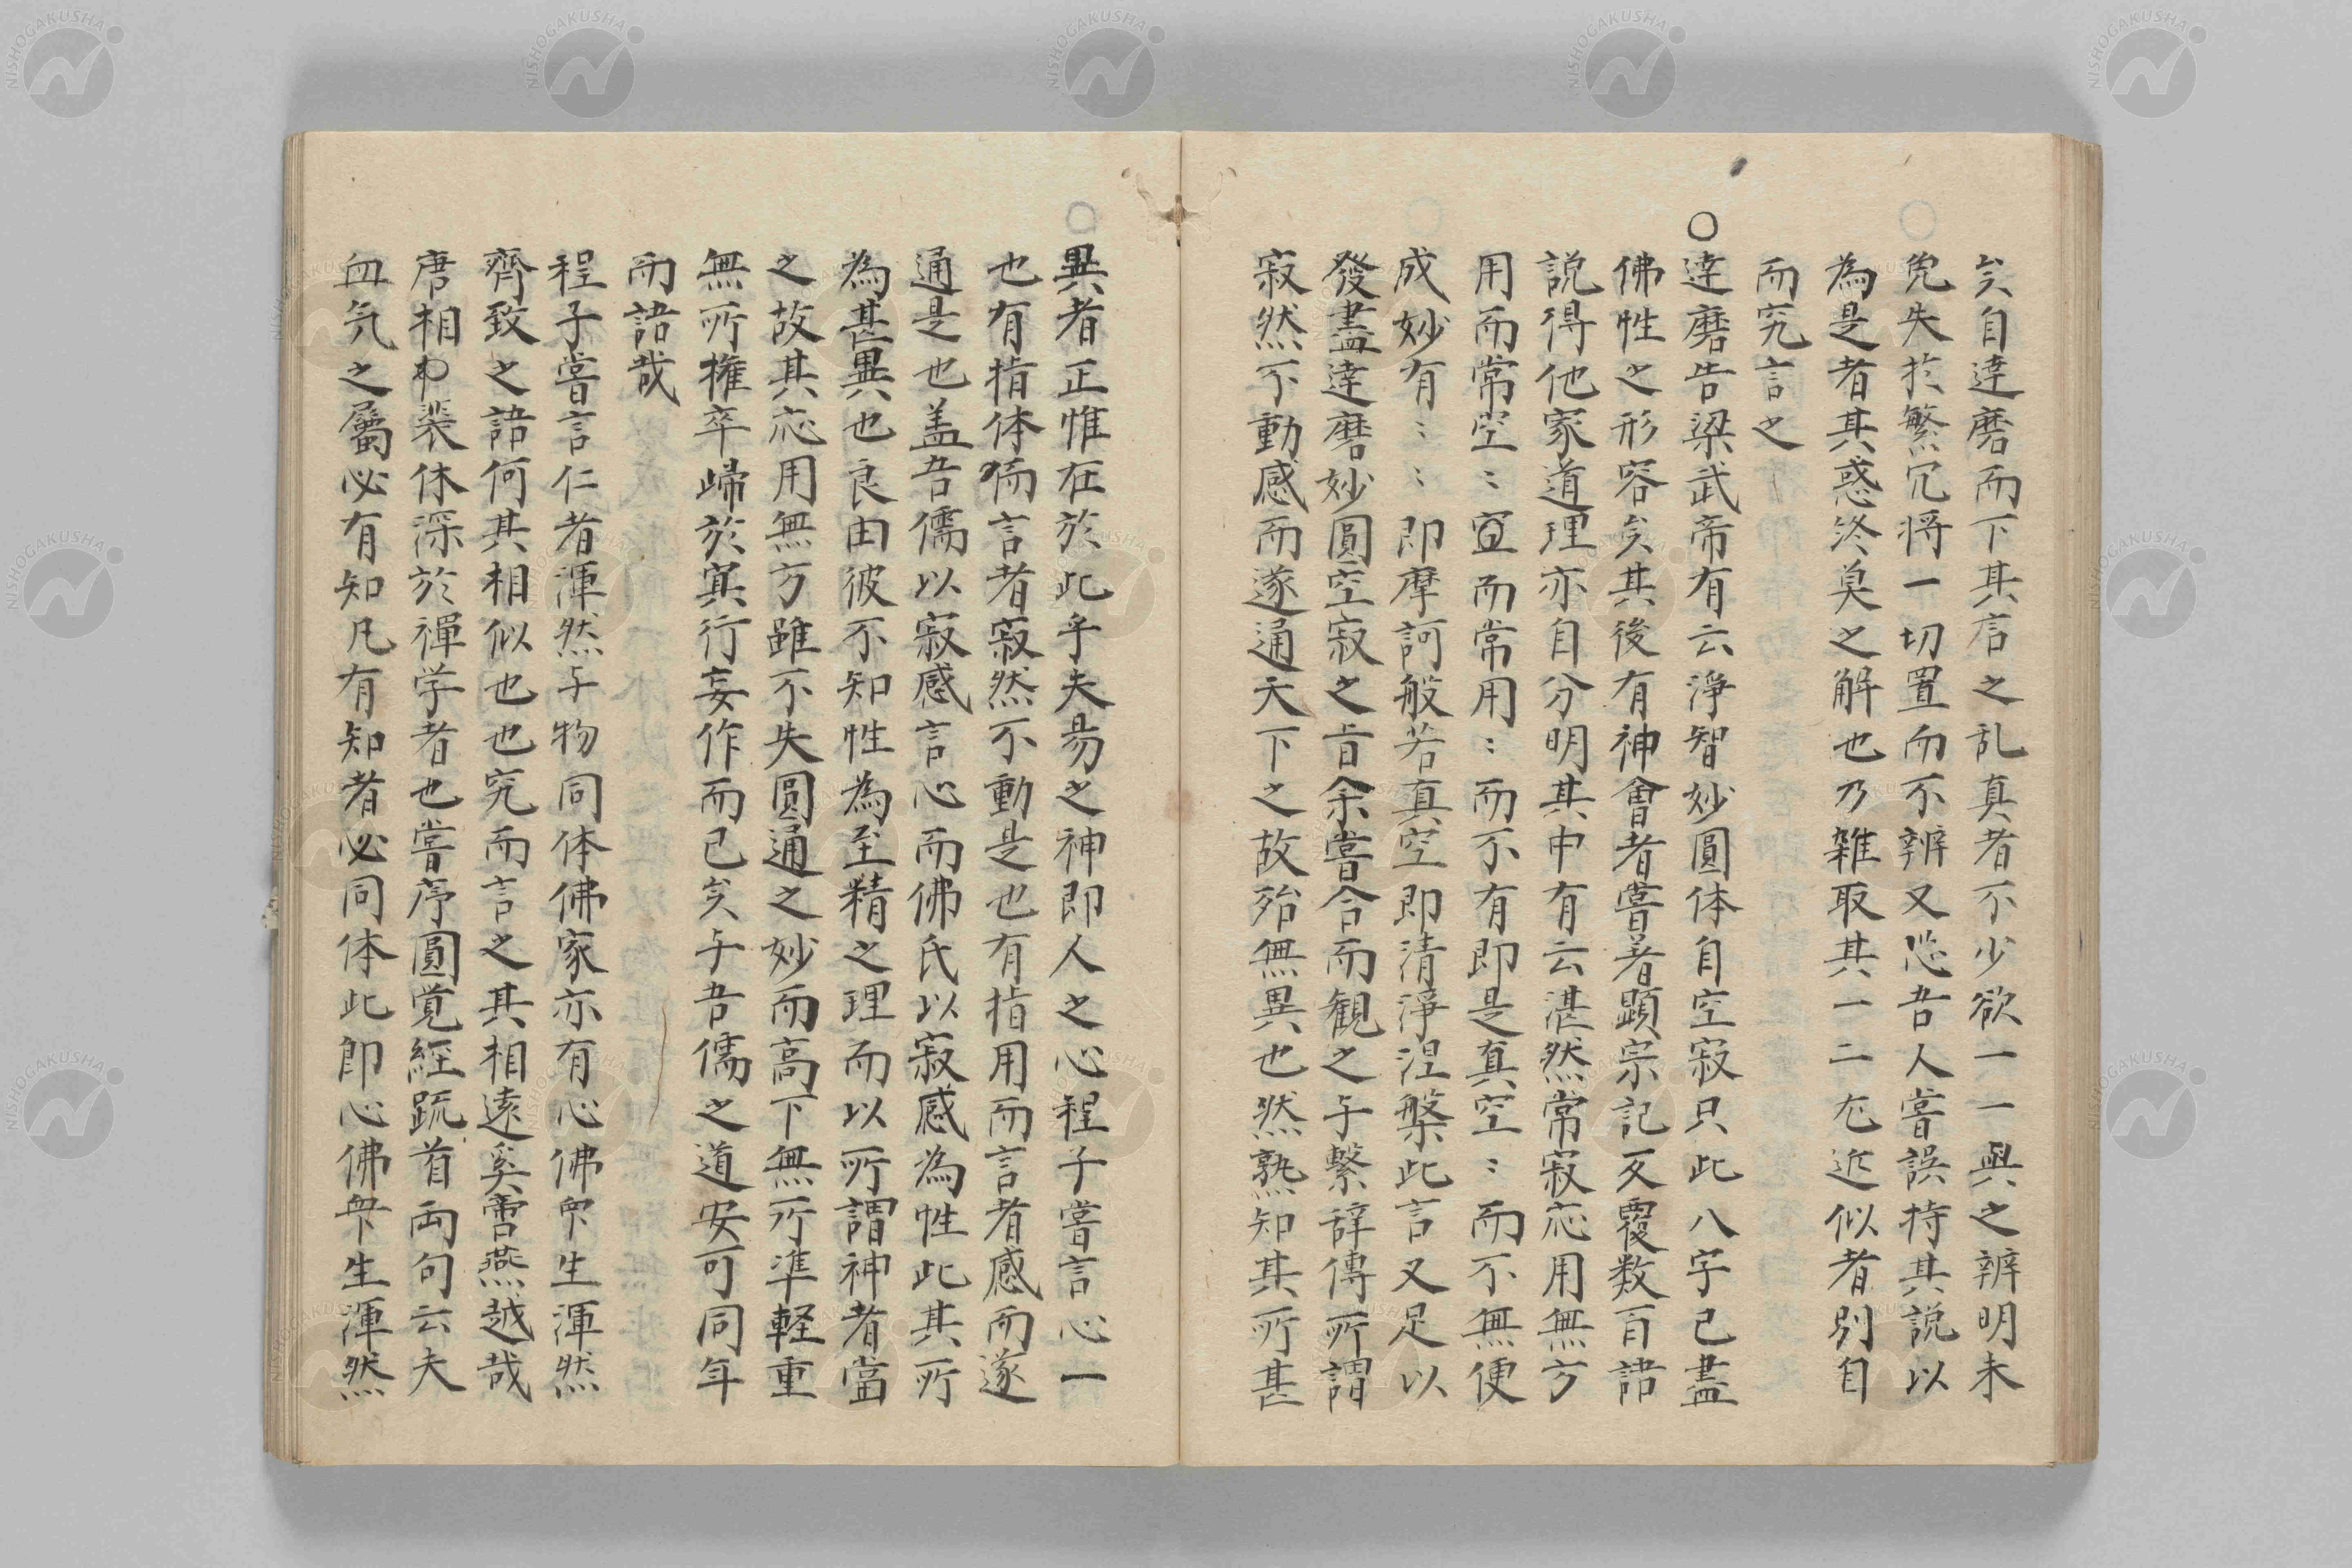 矣自達磨而下其言之乱真者不少欲一一與之辨明未
免失於繁冗将一切置而不辨又恐吾人嘗誤持其説以
為是者其惑終莫之解也乃雑取其一二尤近似者別白
而究言之
○達磨告梁武帝有云淨智妙圓体自空寂只此八字已盡
佛性之形容矣其後有神會者嘗著顕宗記反覆数百語
説得他家道理亦自分明其中有云湛然常寂応用無方
用而常空〻宣而常用〻而不有即是真空〻而不無便
成妙有〻〻即摩訶般若真空即清淨涅槃此言又足以
發盡達磨妙圓空寂之旨余嘗合而観之与繋辞傳所謂
寂然不動感而遂通天下之故殆無異也然孰知其所甚
異者正惟在於此乎夫易之神即人之心程子嘗言心一
也有指体而言者寂然不動是也有指用而言者感而遂
通是也盖吾儒以寂感言心而佛氏以寂感為性此其所
為甚異也良由彼不知性為至精之理而以所謂神者當
之故其応用無方雖不失圓通之妙而高下無所準軽重
無所権卒帰於冥行妄作而已矣与吾儒之道安可同年
而語哉
程子嘗言仁者渾然与物同体佛家亦有心佛衆生渾然
齊致之語何其相似也也究而言之其相遠奚啻燕越哉
唐相裴休深於禪学者也嘗序圓覚經疏首両句云夫
血気之屬必有知凡有知者必同体此即心佛衆生渾然
NISHOGAKUSHA